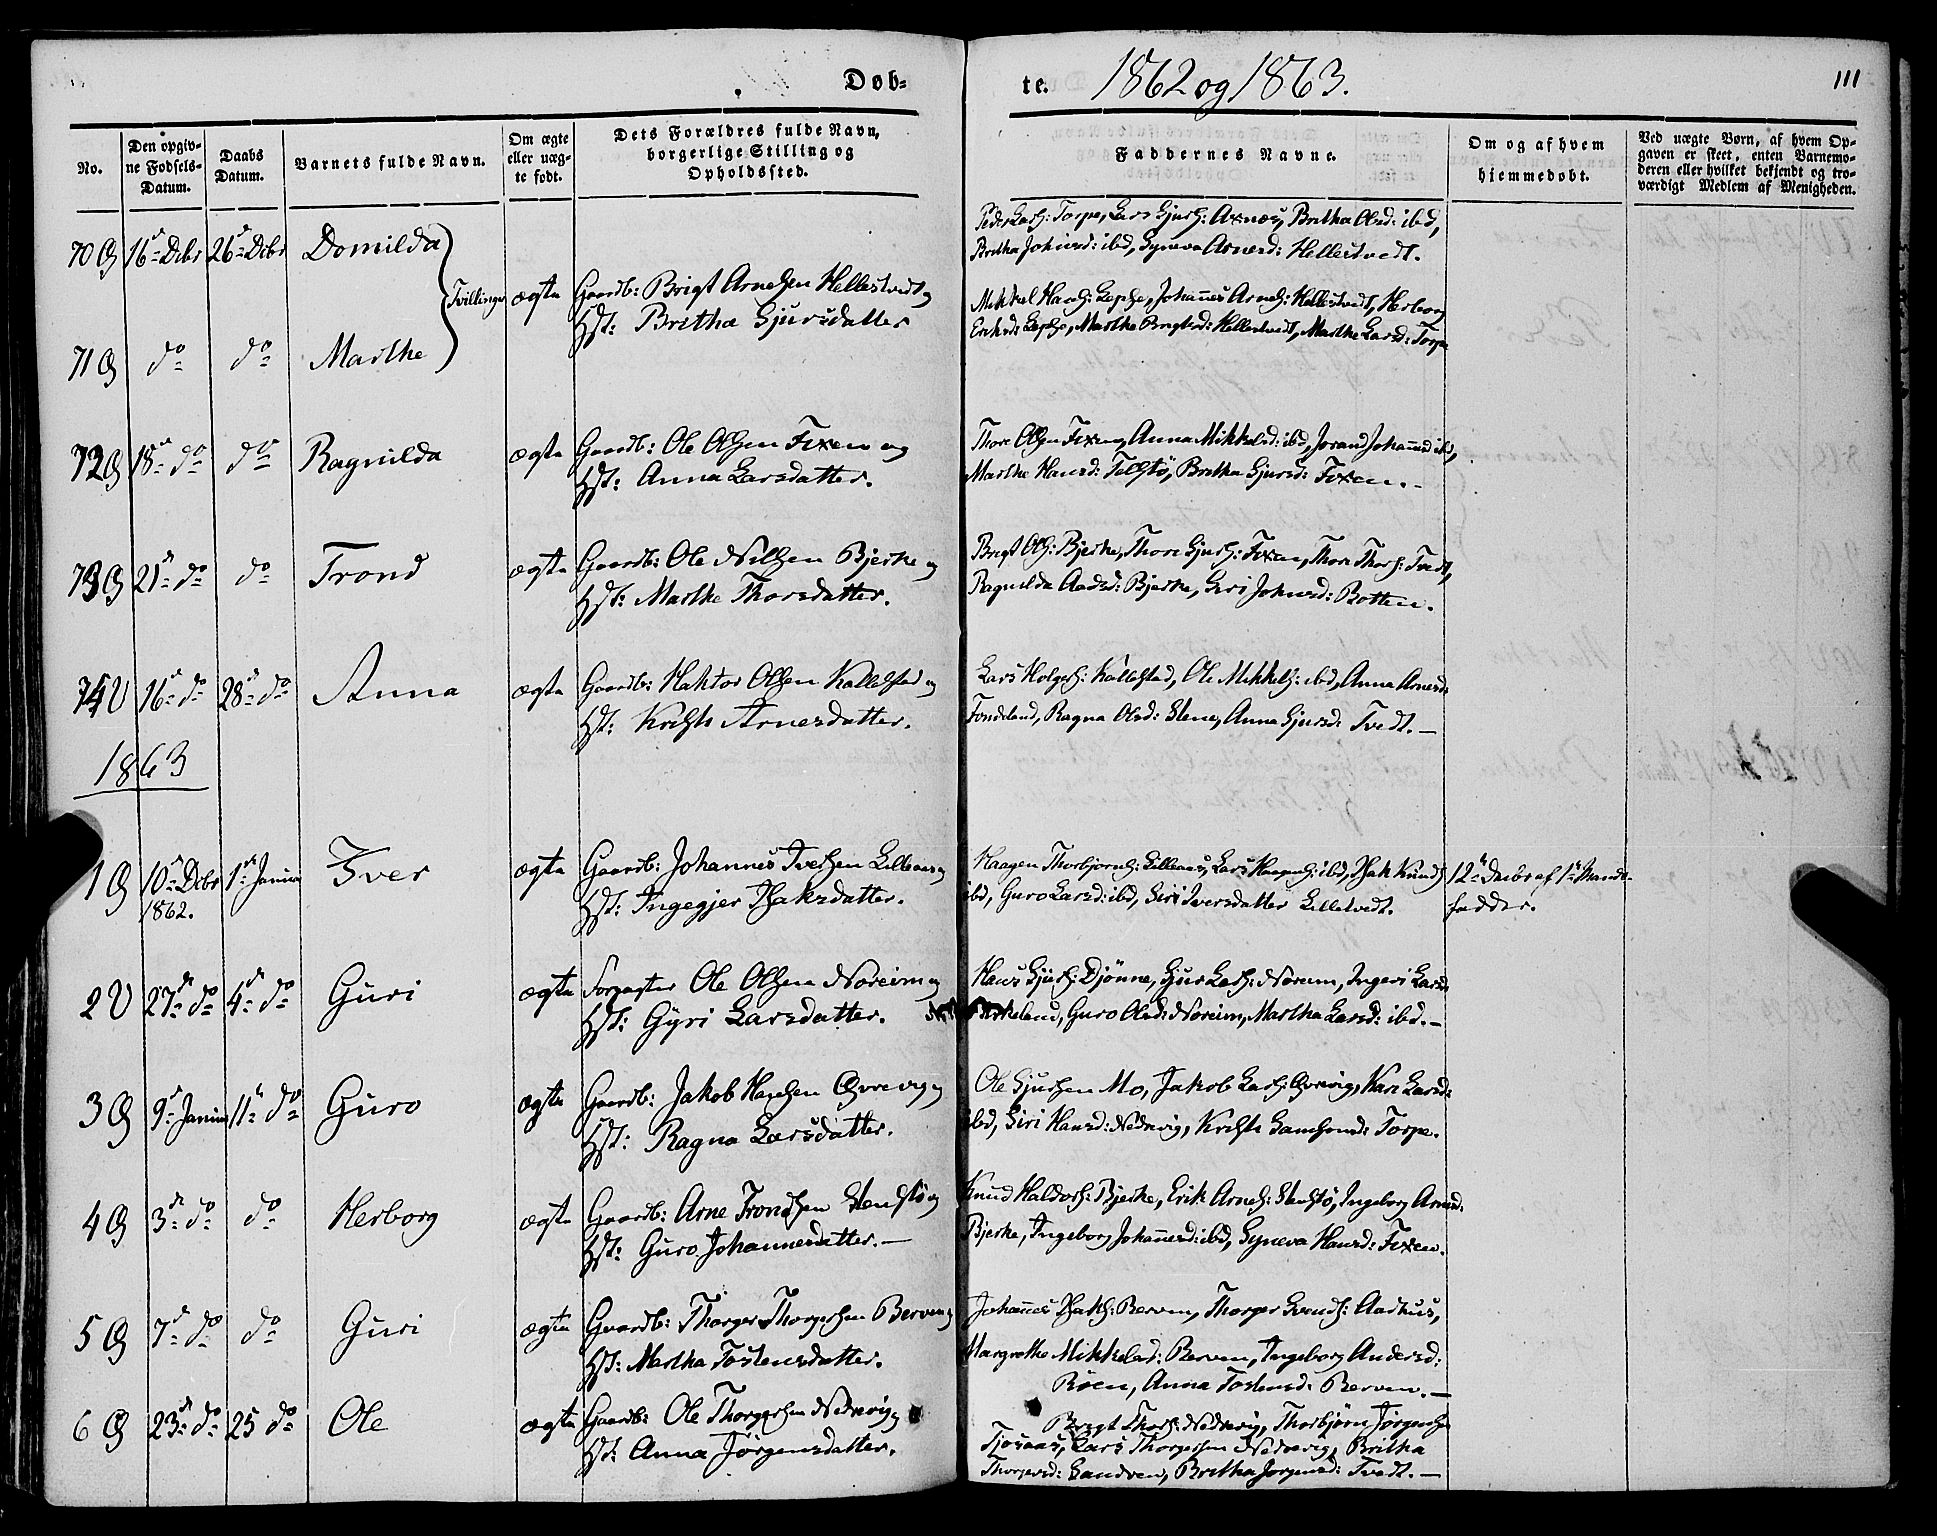 Døb-
te. 1862 og 1863. 111
No.
Den opgiv-
ne Fødsels-
Datum.
Daabs
Datum.
Barnets fulde Navn.
Om ægte
eller uæg-
te født.
Dets Forældres fulde Navn,
borgerlige Stilling og
Opholdssted.
Faddernes Navne.
Om og af hvem
hjemmedøbt.
Ved uægte Børn, af hvem Op-
gaven er skeet, enten Barnemo-
deren eller hvilket bekjendt og tro-
værdigt Medlem af Menigheden.
70 16de Debr 26de Debr Domilda
Tvillinger ægte Gaardb: Brigt Arnesen Hellestvedt og
Hst: Britha Sjursdatter
71 do do Marthe
Peder Larss: Torpe, Lars Sjurs: Axnæs, Britha Olsd: ibd,
Britha Johnsd: ibd, Synneva Arnesd: Hellestvedt.
Mikkel Hans: Lepsøe, Johannes Arnes: Hellestvedt, Herborg
Eriksd: Lepsøe, Marthe Brigtsd: Hellestvedt, Marthe Larsd: Torpe
72 18de do do Ragnilda ægte Gaardb: Ole Olsen Fixen og
Hst: Anna Larsdatter.
Thore Olsen Fixen, Anna Mikkelsd: ibd, Jorand Johannesd ibd,
Marthe Hansd: Tolstø, Britha Sjursd: Fixen.-
73 21de do do Trond ægte Gaardb: Ole Nilssen Bjerke og
Hst: Marthe Thorsdatter.
Brigt Ols: Bjerke, Thore Sjurs: Fixen, Thore Thors: Tvedt,
Ragnilda Aadsd: Bjerke, Siri Johnsd: Botten.
74 V 16de do 28de do Anna ægte Gaardb: Haktor Olsen Kallestad og
Hst: Kristi Arnesdatter.
Lars Holges: Kallestad, Ole Mikkels: ibd, Anna Arnesd:
Fondeland, Ragna Olsd: Steine, Anna Sjursd: Tvedt.-
1863
1 10de Debr 1ste Januar Iver ægte Gaardb: Johannes Ivessen Lilleaas og
1862. Hst: Ingegjer Isaksdatter.
Haagen Thorbjørns: Lilleaas, Lars Haagens: ibd, Isak Knuds
ibd, Guro Larsd: ibd, Siri Iversdatter Lilletvedt.
12te Decbr af 1ste Mands-
fadder.
2 V 27de do 4de do Guri ægte Forpagter Ole Olsen Noreim og
Hst: Gyri Larsdatter.
Hans Sjurs: Djønne, Sjur Lars: Noreim, Ingeri Larsd:
Birkeland, Guro Olsd: Noreim, Martha Larsd: ibd.-
3 9de Januar 11te do Guro ægte Gaardb: Jakob Hanssen Øvrevig og
Hst: Ragna Larsdatter.
Ole Sjursen Mo, Jakob Lars: Øvrevig, Kari Larsd:
ibd, Siri Hansd: Nedrevig, Kristi Samsonsd: Torpe.
4 3de do do Herborg ægte Gaardb: Arne Trondsen Stenstø og
Hst: Guro Johannesdatter.-
Knud Haldors: Bjerke, Erik Arnes: Stenstø, Ingeborg Arnesd:
Bjerke, Ingeborg Johannesd: ibd, Synneva Hansd: Fixen.
5 7de do do Guri ægte Gaardb: Thorger Thorgersen Berven og
Hst: Martha Tostensdatter.
Johannes Isaks: Berven, Thorger Svends: Aadhus,
Margrethe Mikkelsd: Berven, Ingeborg Andersd:
Røen, Anna Tostensd: Berven.-
6 23de do 25 do Ole ægte Gaardb: Ole Thorgersen Nedrevig og
Hst: Anna Jørgensdatter.
Brigt Thors: Nedrevig, Thorbjørn Jørgensen
Tjosaas, Lars Thorgersen Nedrevig, Britha
Thorgersd: Sandven, Britha Jørgensd: Tvedt.-